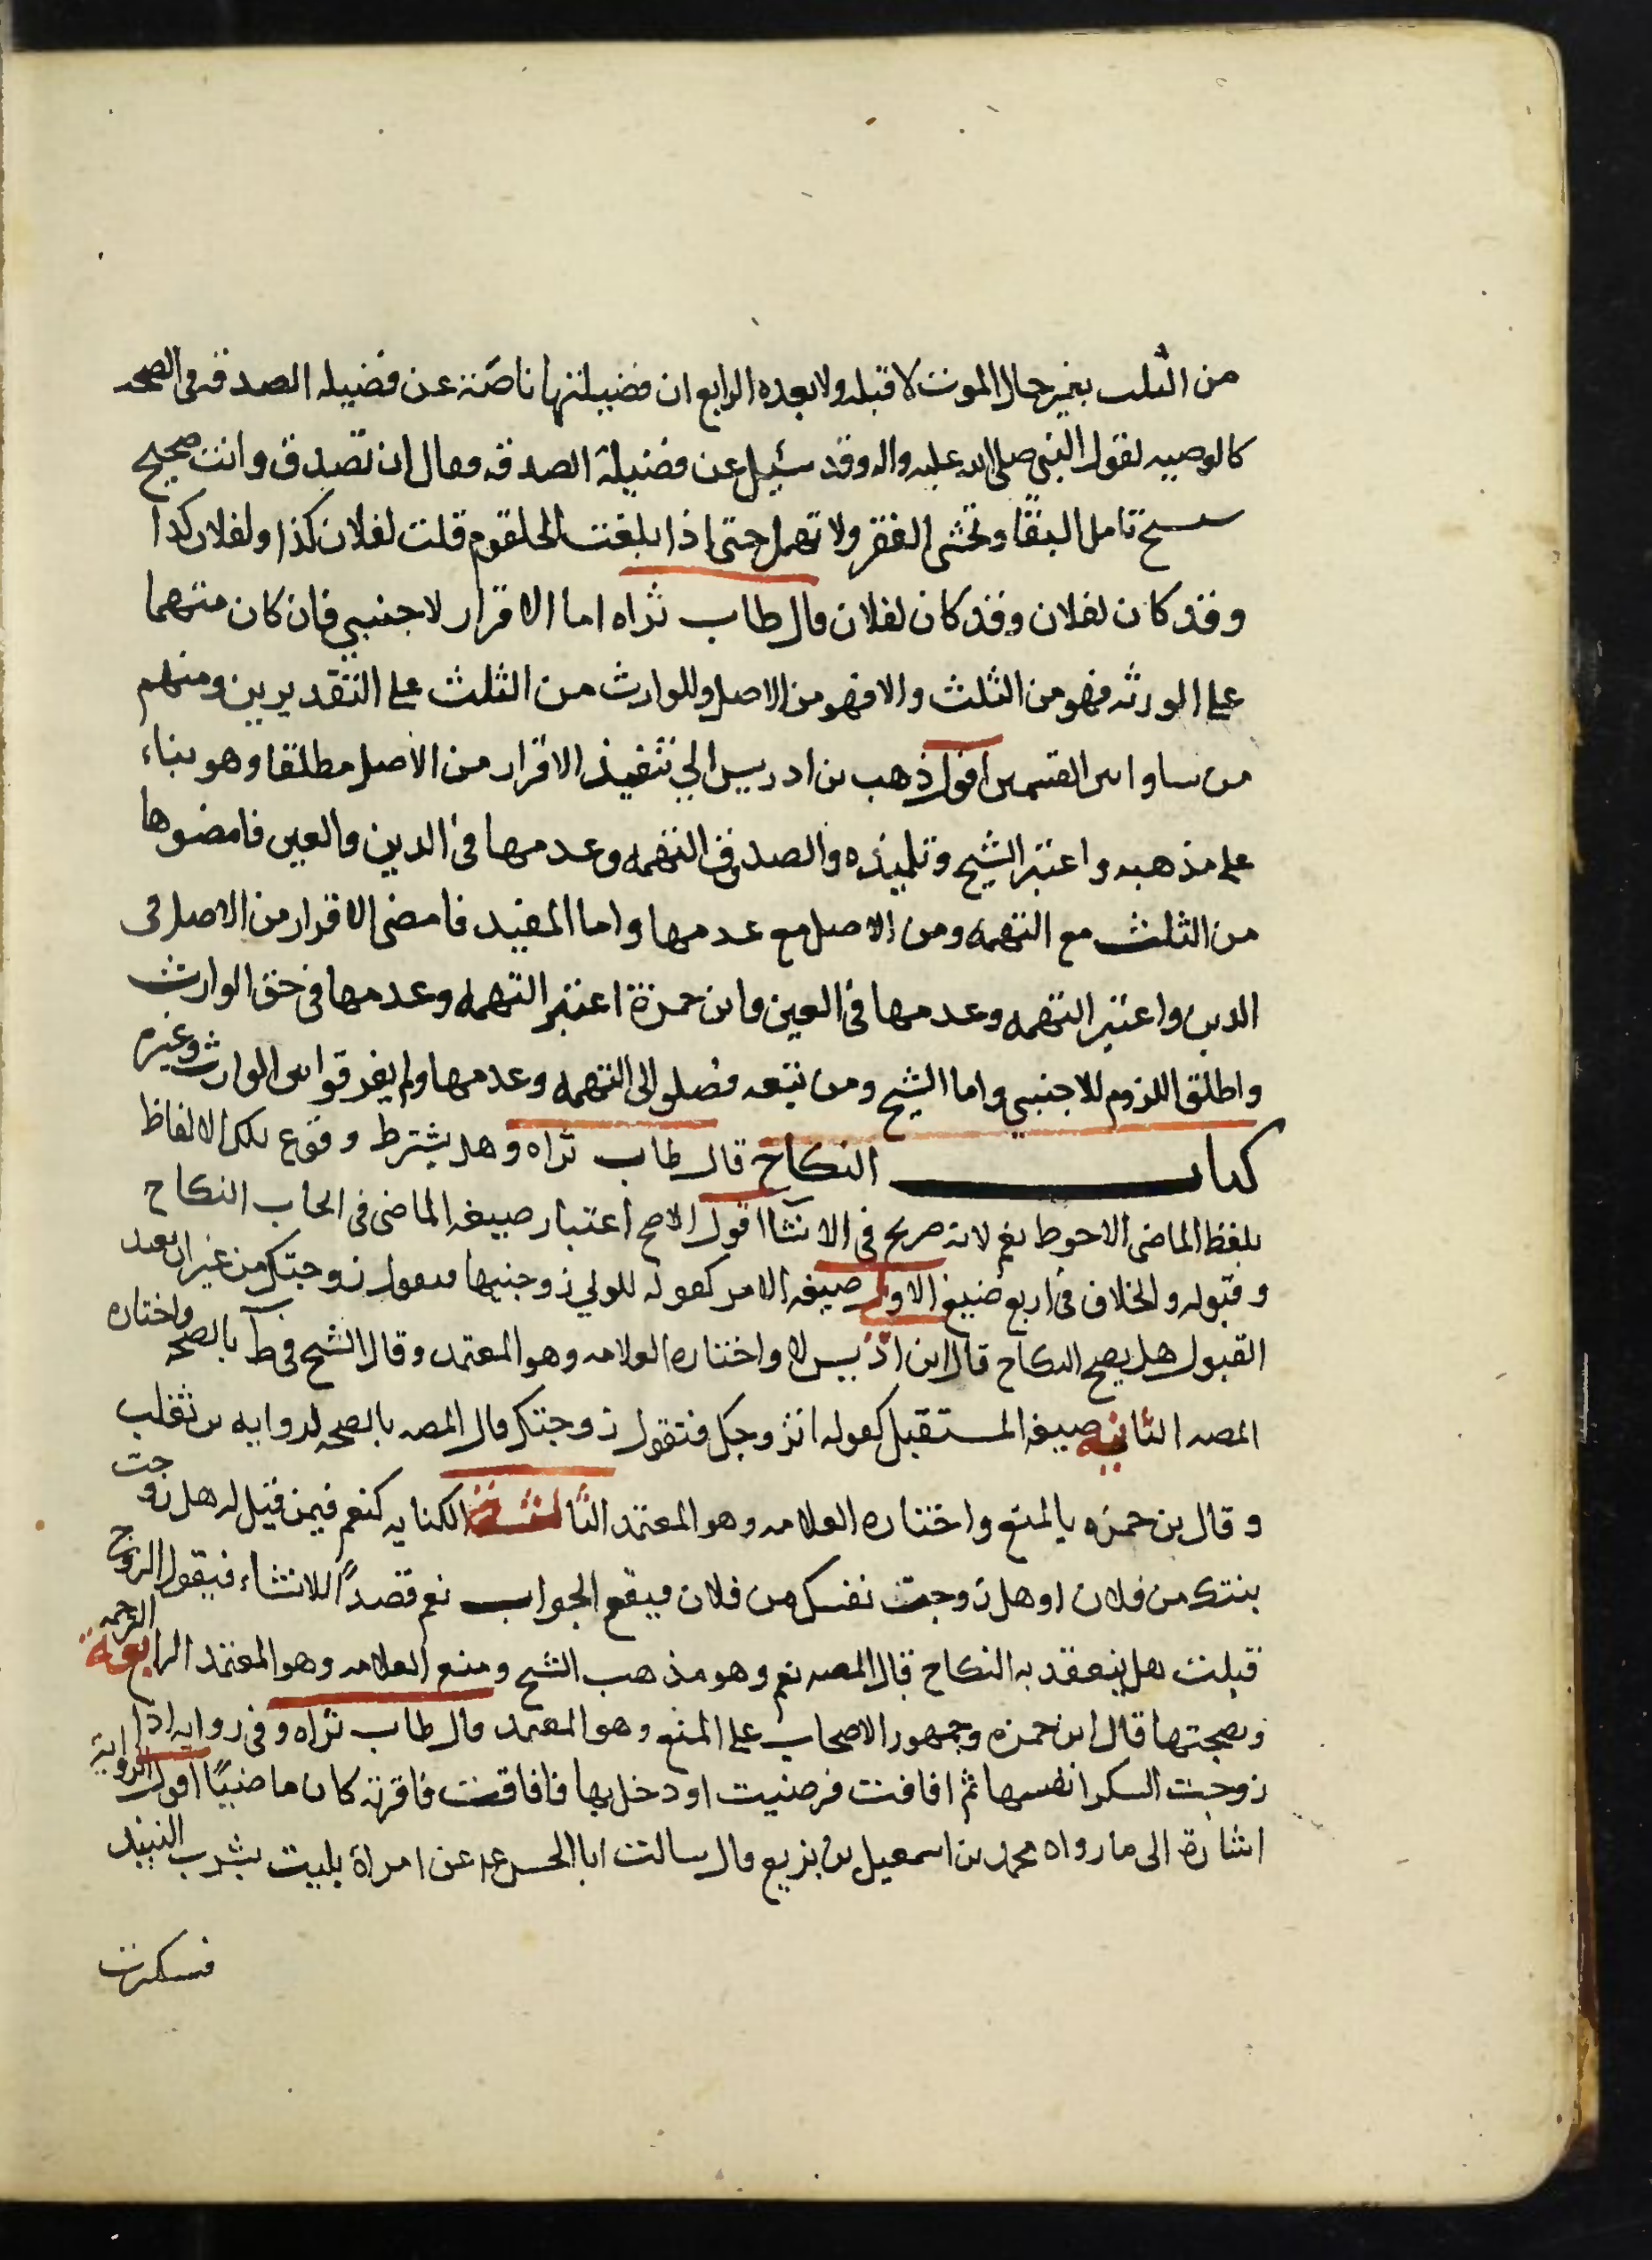 من الثلث بغير حال الموت لا قبله ولا بعده الرابع ان فضيلتها ناقصة عن فضيله الصدقه فى الصحه
كالوصيه لقول النبى صلى الله عليه واله وقد سئيل عن فضيلة الصدقه فقال ان تصدق وانت صحيح
شحيح تامل البقا وتخشى الفقر ولا تهمل حتى اذا بلغت الحلقوم قلت لفلان كذا ولفلان كذا
وقد كان لفلان وقد كان لفلان قال طاب ثراه اما الاقرار لاجنبي فان كان متهما
على الورثه فهو من الثلث والا فهو من الاصل وللوارث من الثلث على التقديرين ومنهم
من ساوا بين القسمين اقول ذهب بن ادريس الي تنفيذ الاقرار من الاصل مطلقا وهو بناء
على مذهبه واعتبر الشيخ وتلميذه والصدوق التهمه وعدمها فى الدين والعين فامضوها
من الثلث مع التهمه ومن الاصل مع عدمها واما المفيد فامضى الاقرار من الاصل فى
الدين واعتبر التهمه وعدمها فى العين وابن حمزة اعتبر التهمه وعدمها فى حق الوارث
واطلق اللزوم للاجنبي واما الشيخ ومن تبعه فصلو الى التهمه وعدمها ولم يفرقوا بين الوارث وغيره
كتاب النكاح قال طاب ثراه وهل يشترط وقوع تلك الالفاظ
بلفظ الماضى الاحوط نعم لانه صريح فى الانشا اقول الاصح اعتبار صيغه الماضى فى ايجاب النكاح
وقبوله والخلاف فى اربع صيغ الاولى صيغه الامر كقوله للولي زوجنيها فيقول زوجتك من غير ان يعيد
القبول هل يصح النكاح قال ابن ادريس لا واختاره العلامه وهو المعتمد وقال الشيخ فى ط بالصحه واختاره
المصه الثانيه صيغه المستقبل كقوله اتزوجك فتقول زوجتك قال المصه بالصحه لروايه بن تغلب
وقال بن حمزه بالمنع واختاره العلامه وهو المعتمد الثالثة الكنايه كنعم فيمن قيل له هل زوجت
بنتك من فلان او هل زوجت نفسك من فلان فيقع الجواب نعم قصدًا للانشاء فيقول الزوج
قبلت هل ينعقد به النكاح قال المصه نعم وهو مذهب الشيخ ومنع العلامه وهو المعتمد الرابعة الترجمه
وبصحتها قال ابن حمزه وجمهور الاصحاب على المنع وهو المعتمد قال طاب ثراه وفى روايه اذا
زوجت السكرا نفسها ثم افاقت فرضيت او دخل بها فافاقت فاقرته كان ماضيًا اقول الروايه
اشارة الى ما رواه محمد بن اسمعيل بن بزيع قال سالت ابا الحسن عه عن امراة بليت بشرب النبيذ
فسكرت